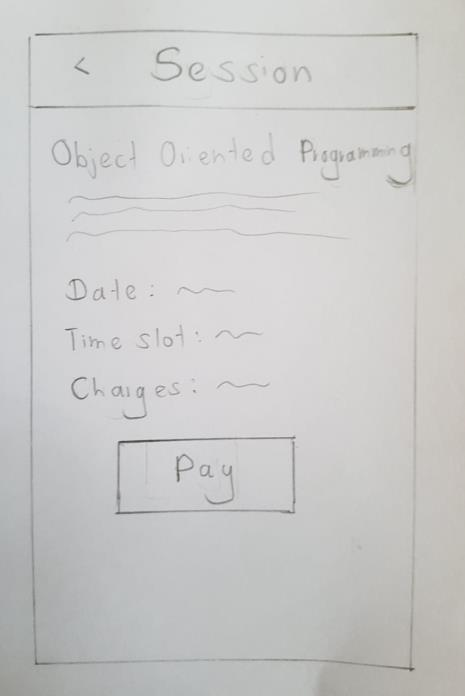 < Session
Object Oriented Programming
Date:
Time slot:
Charges:
Pay